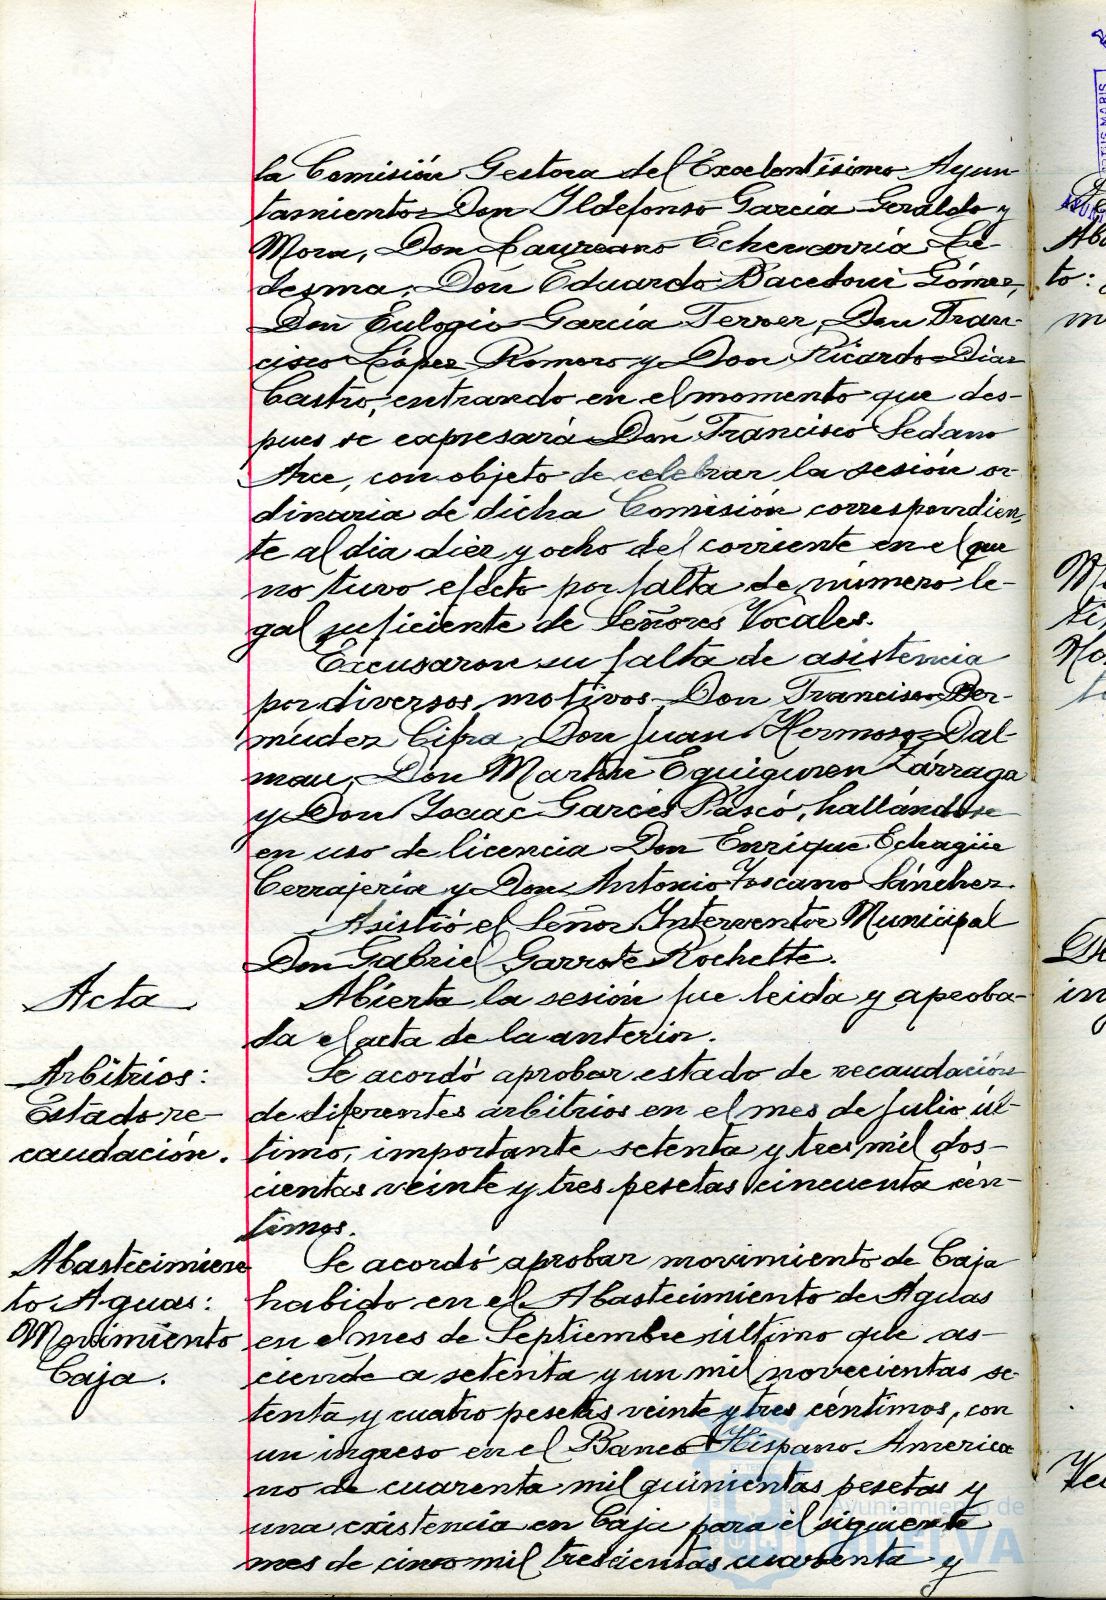 la Comisión Gestora del Excelentísimo Ayun-
tamiento Don Ildefonso García Geraldo y
Mora, Don Laureano Echevarría Le-
desma, Don Eduardo Bacedoni Gómez,
Don Eulogio García Ferrer, Don Fran-
cisco López Romero y Don Ricardo Díaz
Castro, entrando en el momento que des-
pues se expresará Don Francisco Sedano
Arce, con objeto de celebrar la sesión or-
dinaria de dicha Comisión correspondien-
te al dia diez y ocho del corriente en el que
no tuvo efecto por falta de número le-
gal suficiente de Señores Vocales.
Excusaron su falta de asistencia
por diversos motivos Don Francisco Ber-
mudez Cifra, Don Juan Hermoso Dal-
mau, Don Martín Eguiguren Zárraga
y Don Isaac Garcés Pascó, hallándose
en uso de licencia Don Enrique Echagüe
Cerrajería y Don Antonio Toscano Sánchez.
Asistió el Señor Interventor Municipal
Don Gabriel Garrote Rochette.
Acta
Abierta la sesión fue leida y aproba-
da el acta de la anterior.
Arbitrios:
Estado re-
caudación.
Se acordó aprobar estado de recaudación
de diferentes arbitrios en el mes de Julio úl-
timo, importante setenta y tres mil dos-
cientas veinte y tres pesetas cincuenta cén-
timos.
Abastecimien
to Aguas:
Movimiento
Caja.
Se acordó aprobar movimiento de Caja
habido en el Abastecimiento de Aguas
en el mes de Septiembre último que as-
ciende a setenta y un mil novecientas se-
tenta y cuatro pesetas veinte y tres céntimos, con
un ingreso en el Banco Hispano America
no de cuarenta mil quinientas pesetas y
una existencia en Caja para el siguiente
mes de cinco mil trescientas cuarenta y
Ayuntamiento de
HUELVA